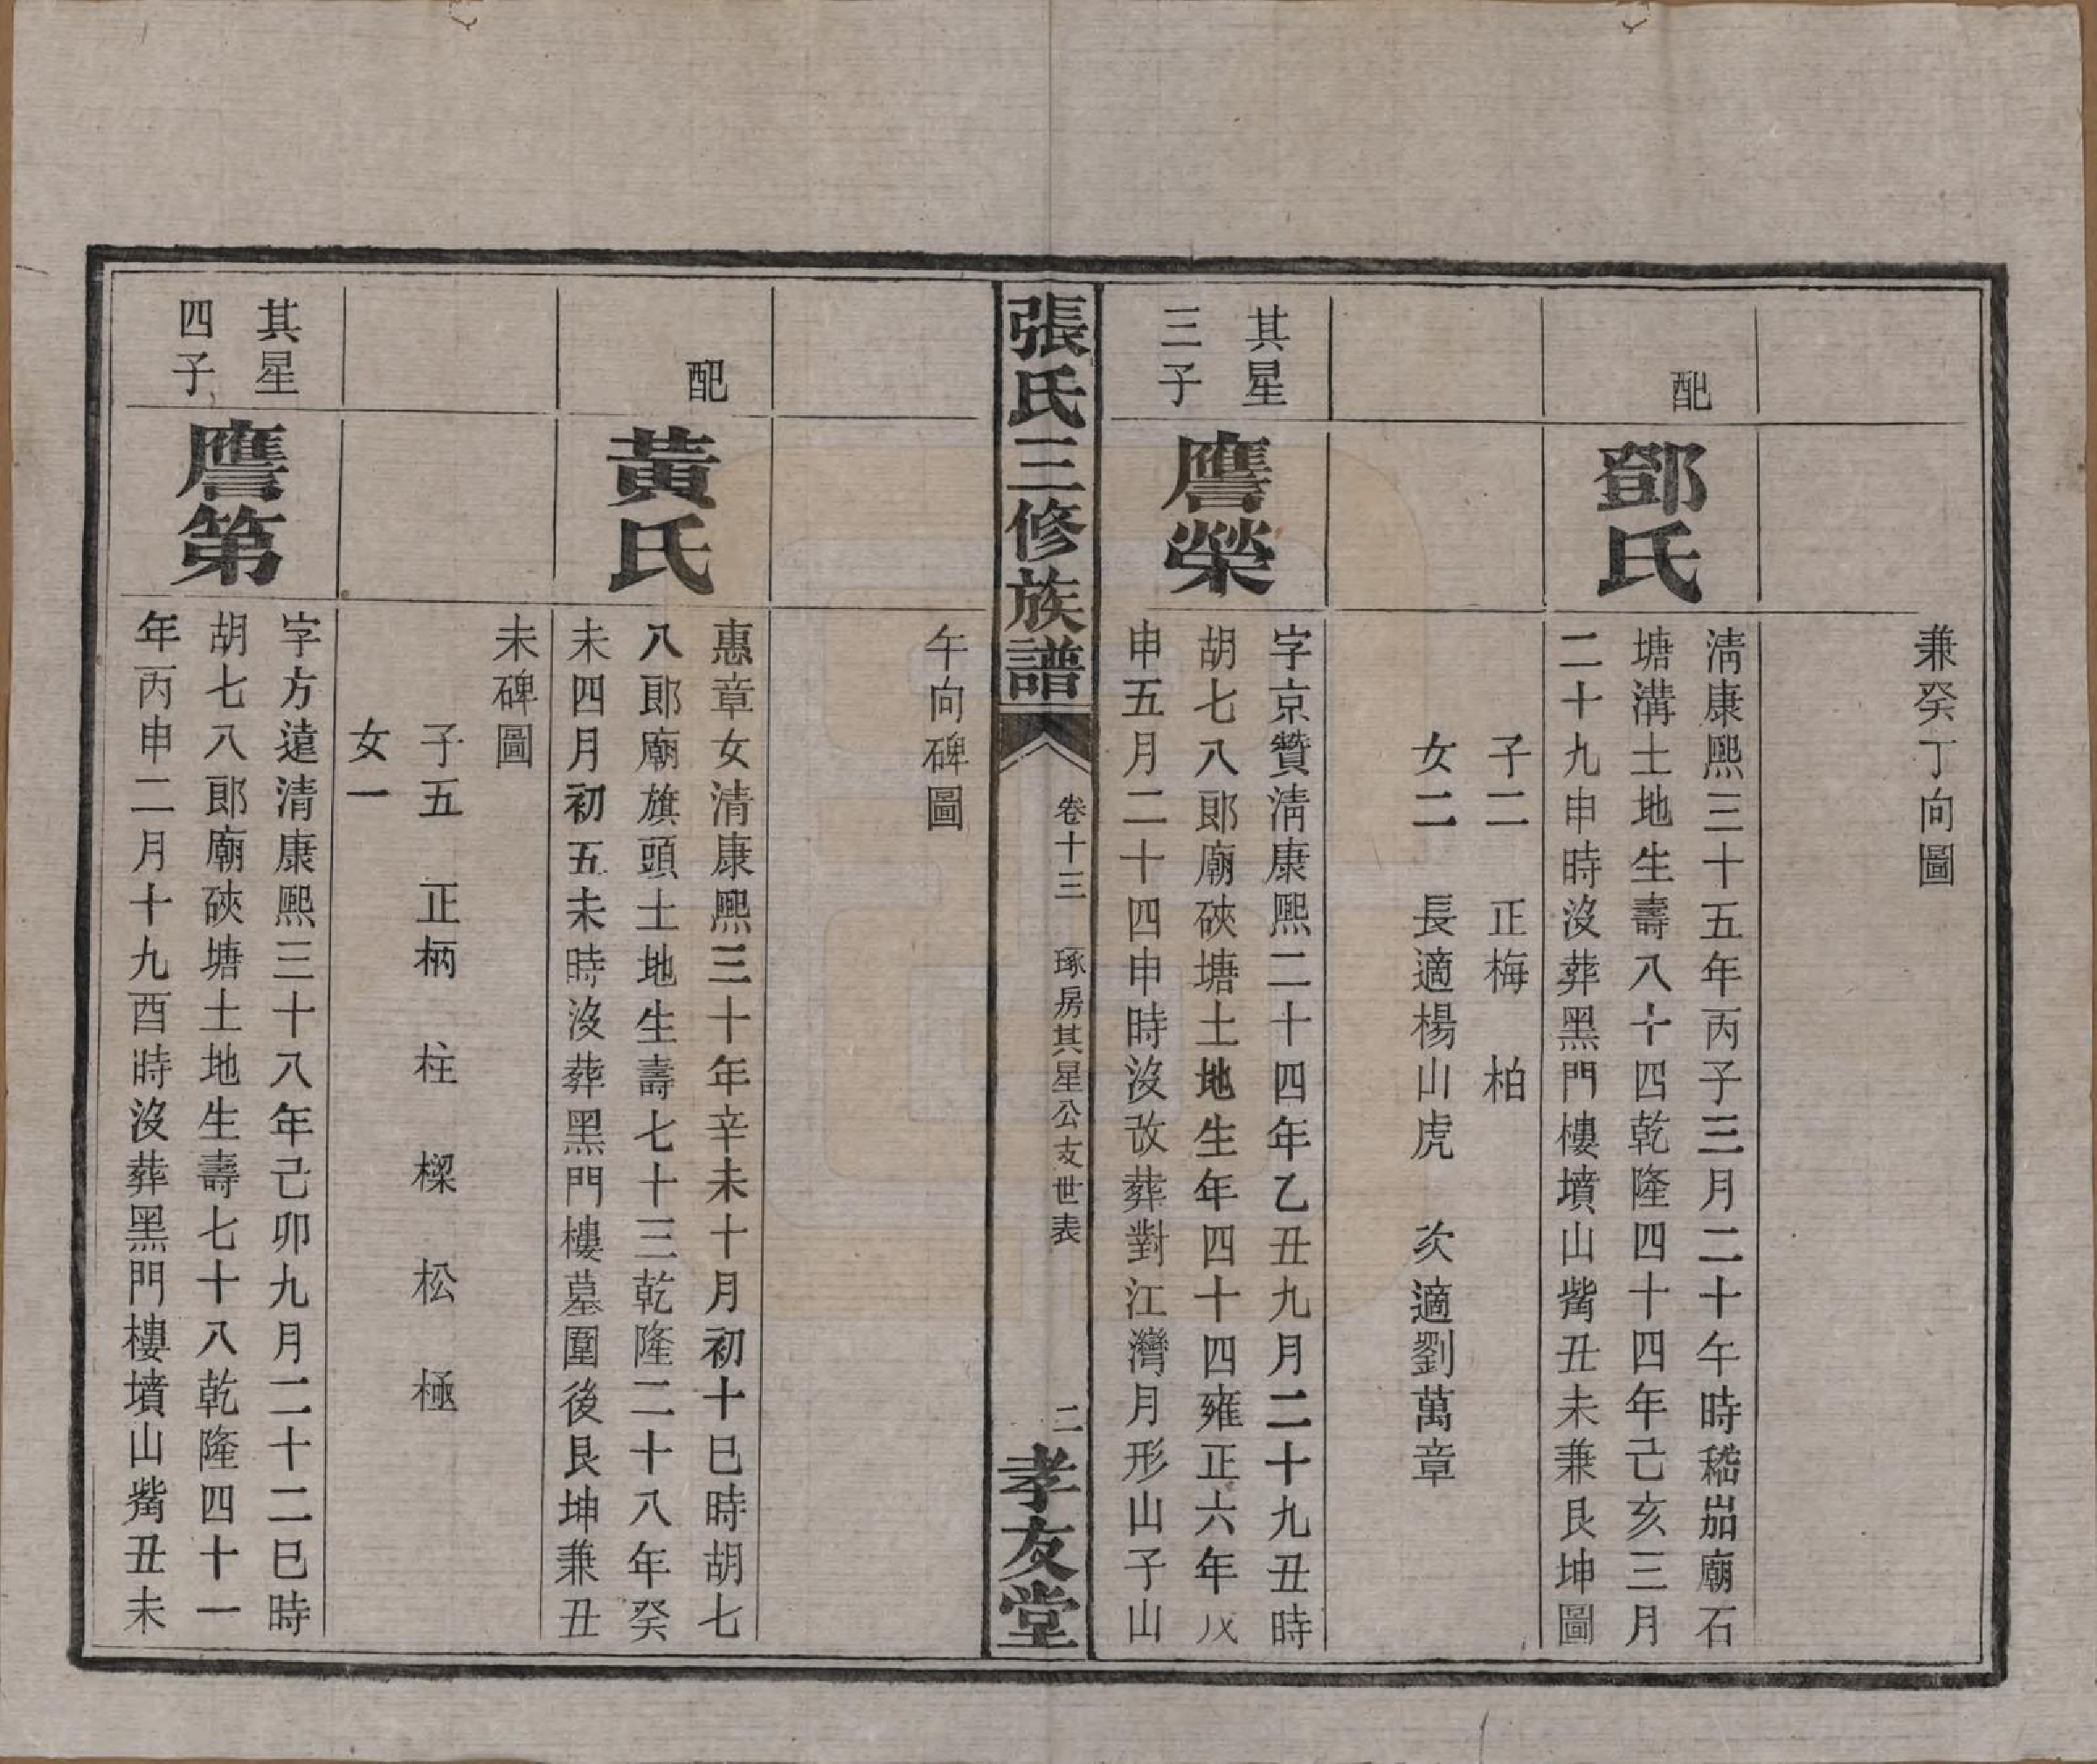 兼癸丁向圖
配
鄧氏
淸康熙三十五年丙子三月二十午時嵇岀廟石
塘溝土地生壽八十四乾隆四十四年己亥三月
二十九申時沒葬黑門樓墳山觜丑未兼艮坤圖
子二 正梅 柏
女二 長適楊山虎 次適劉萬章
其星
三子
譍榮
字京贊淸康熙二十四年乙丑九月二十九丑時
胡七八郎廟硤塘土地生年四十四雍正六年戊
申五月二十四申時沒改葬對江灣月形山子山
張氏三修族譜
卷十三 琢房其星公支世表
二
孝友堂
午向碑圖
配
黃氏
惠章女清康熙三十年辛未十月初十巳時胡七
八郎廟旗頭土地生壽七十三乾隆二十八年癸
未四月初五未時沒葬黑門樓墓圍後艮坤兼丑
未碑圖
子五 正柄 柱 樑 松 極
女一
其星
四子
譍第
字方遠清康熙三十八年己卯九月二十二巳時
胡七八郎廟硤塘土地生壽七十八乾隆四十一
年丙申二月十九酉時沒葬黑門樓墳山觜丑未